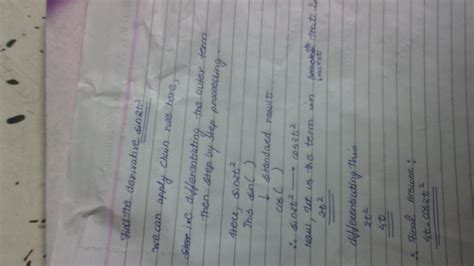 Find the derivative sin2t²
we can apply chain rule here,
i.e differentiating the outer term
then step by step proceeding.
Here, sin2t²
This sin( )
↓ standard result
cos( )
∴ sin2t² cos2t²
now, 2t² is the term in bracket that is
2t²
differentiating this
2t²
4t
∴ Final Answer:
4t×cos2t²